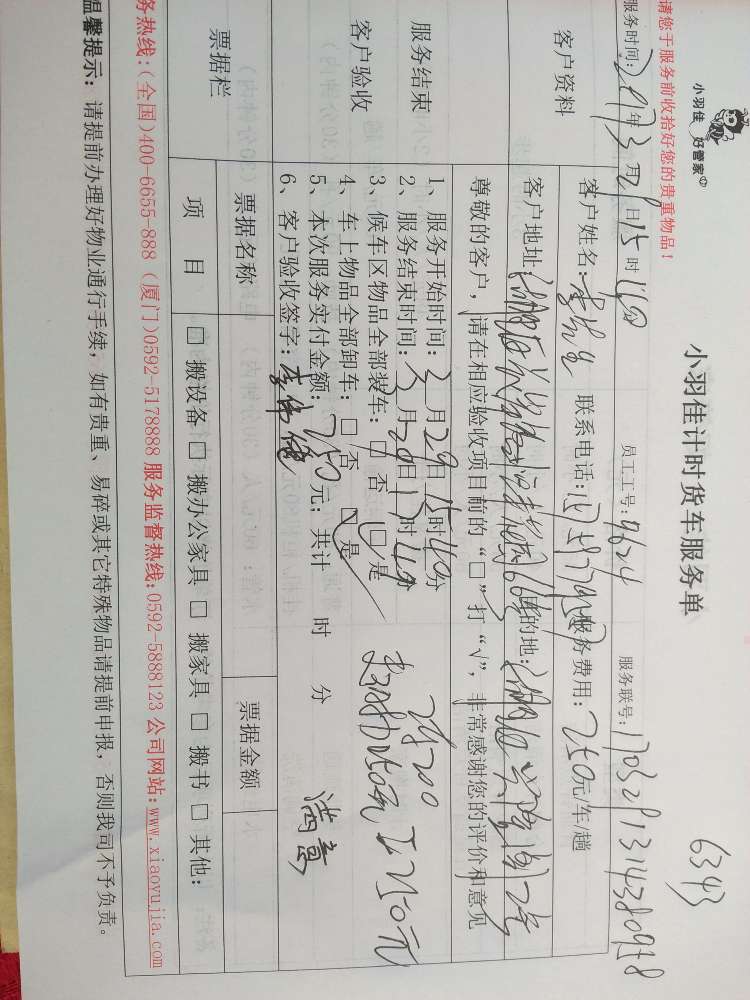 小羽佳 好管家
6343
小羽佳计时货车服务单
请您于服务前收拾好您的贵重物品！
服务时间：2017年3月29日15时40 员工工号：9624 服务联号：
客户资料
客户姓名：李先生 联系电话： 服务费用：250元/车/趟
客户地址： 目的地：
尊敬的客户，请在相应验收项目前的“□”打“√”，非常感谢您的评价和意见
服务结束
客户验收
1、服务开始时间：3月29日15时40分
2、服务结束时间：3月29日17时 分
3、候车区物品全部装车：□否 □是
4、车上物品全部卸车：□否 □是
5、本次服务实付金额：250元；共计 时 分
6、客户验收签字：李
满意
票据栏
票据名称 票据金额
项 目 □搬设备 □搬办公家具 □搬家具 □搬书 □其他：
务热线：(全国)400-6655-888 (厦门)0592-5178888 服务监督热线：0592-5888123 公司网站：www.xiaoyujia.com
温馨提示：请提前办理好物业通行手续，如有贵重、易碎或其它特殊物品请提前申报，否则我司不予负责。